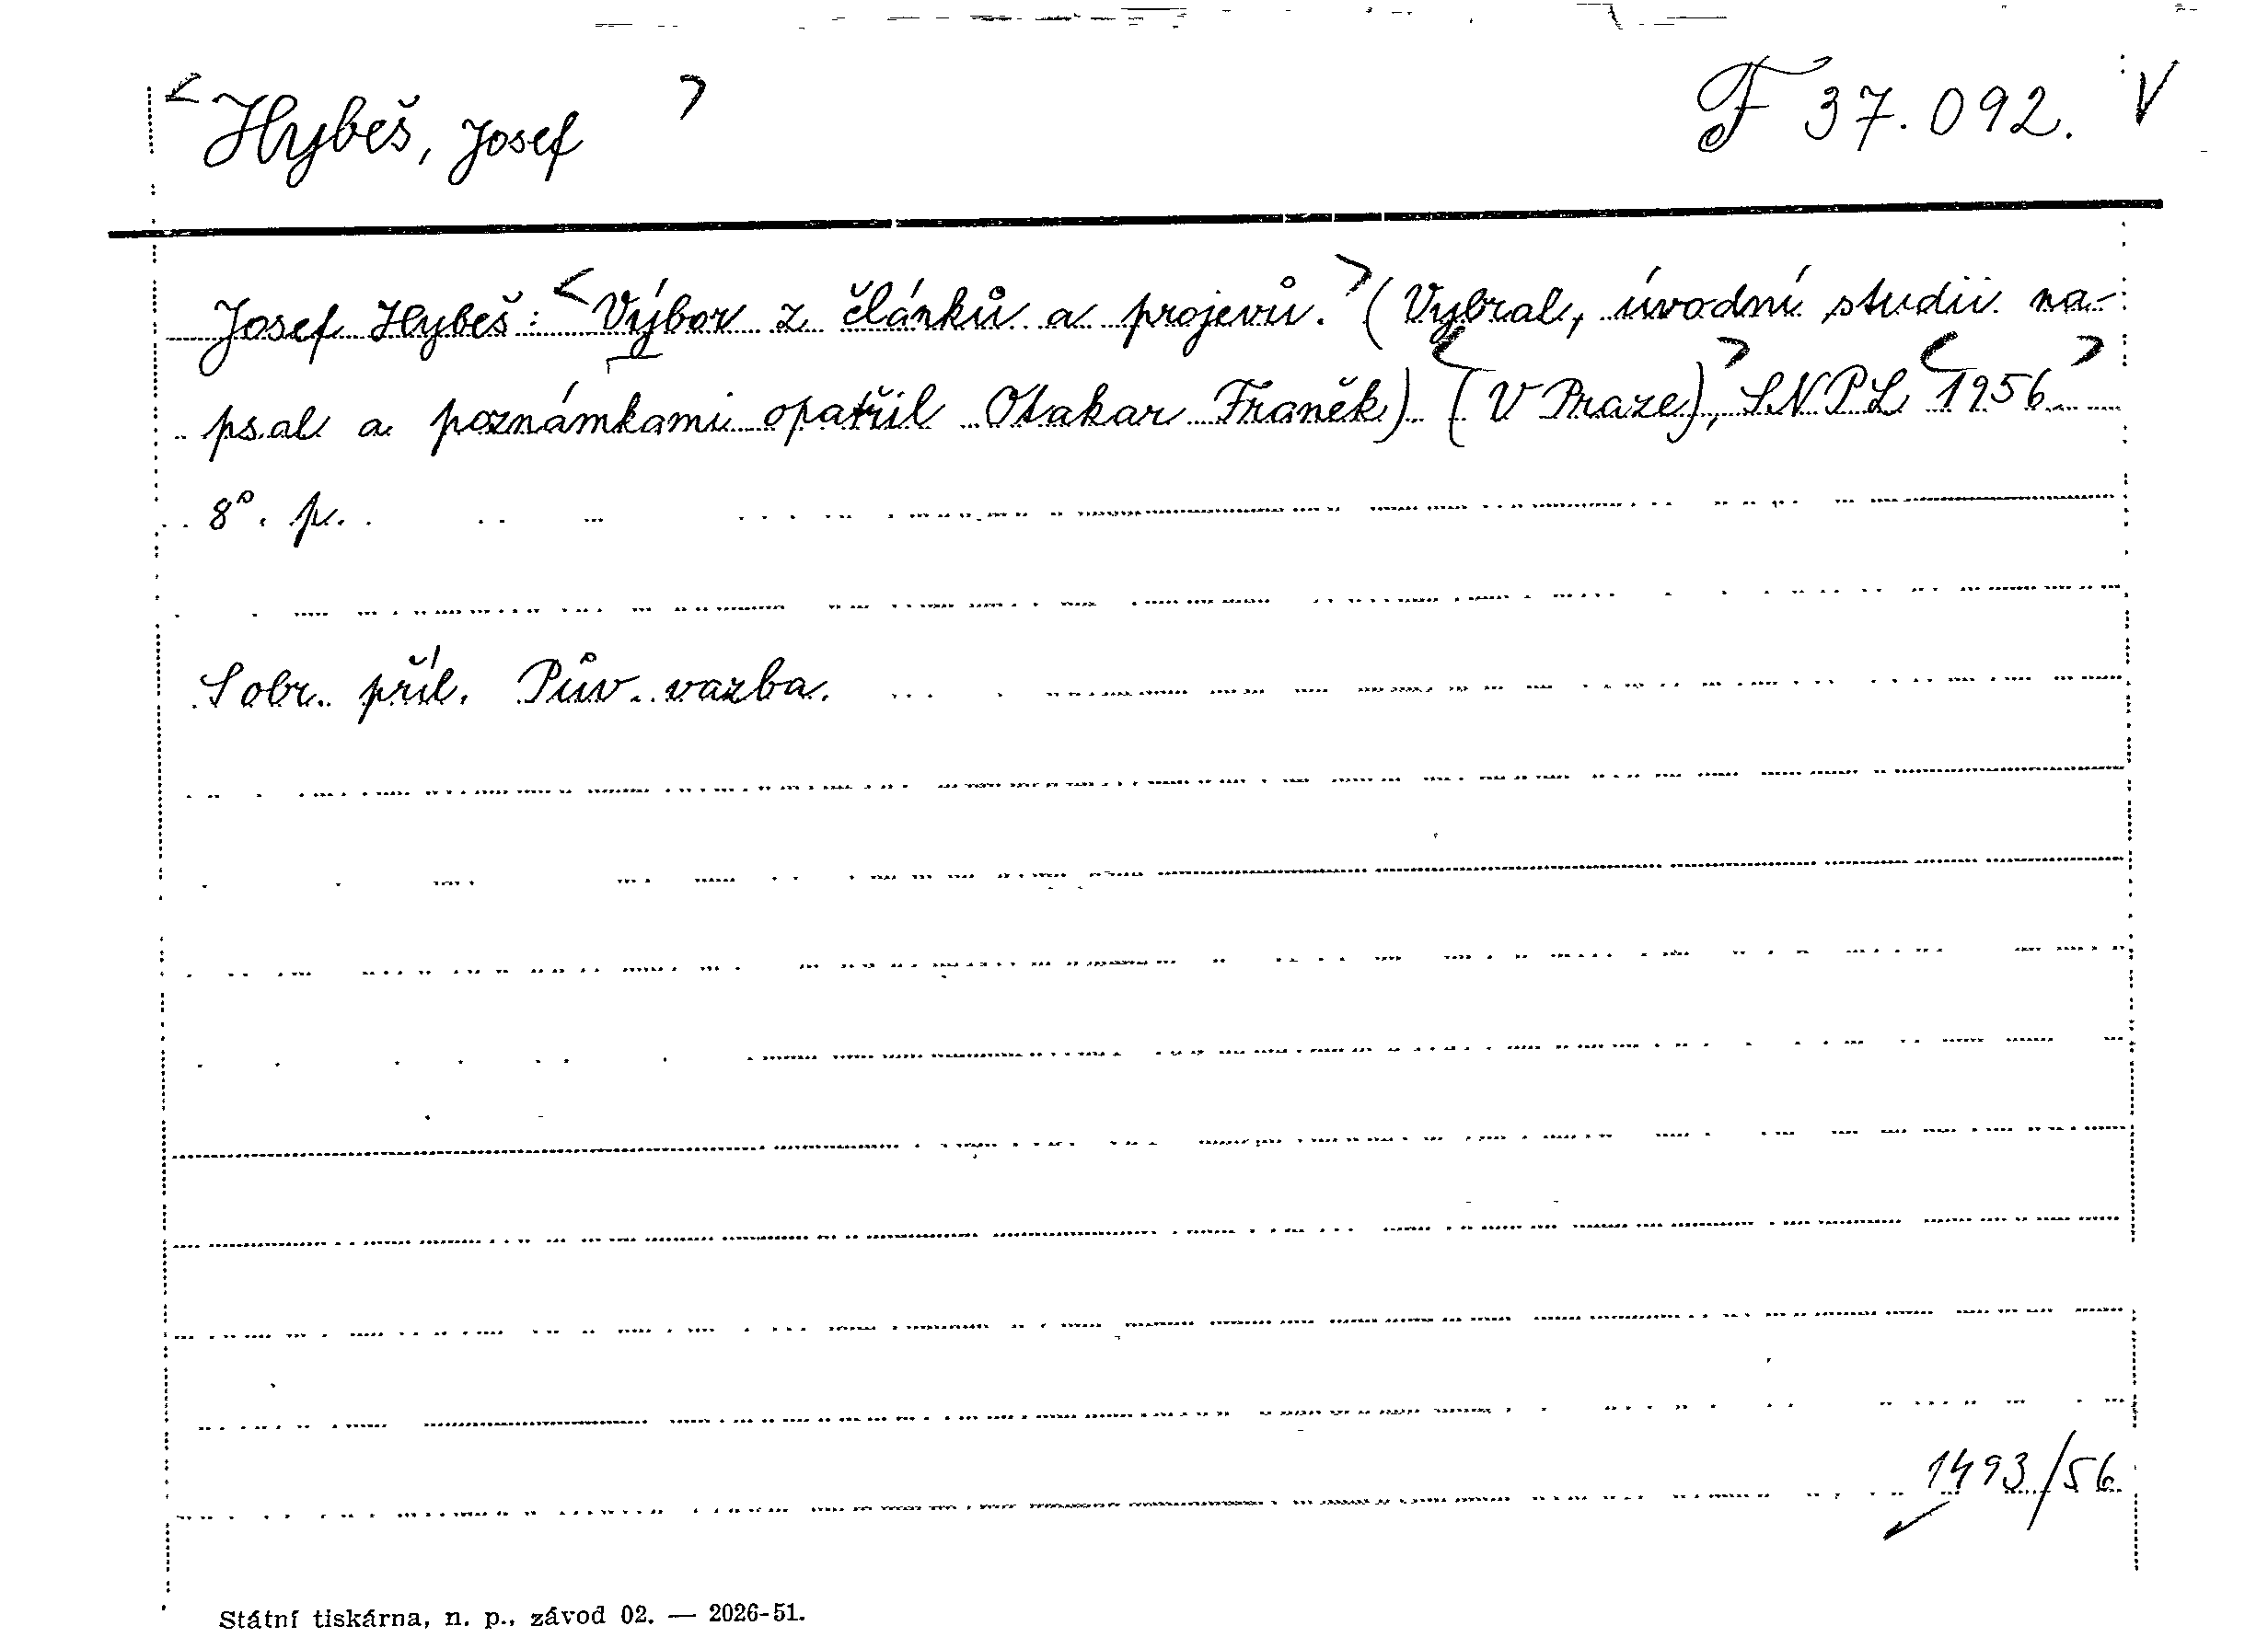 <Hybeš, Josef> F 37.092. V
Josef Hybeš: <Výbor z článků a projevů.> (Vybral, úvodní studii na-
psal a poznámkami opatřil Otakar Franěk) <(V Praze)>, SNPL <1956>
8°. p.
S obr. příl. Pův. vazba.
1493/56
Státní tiskárna, n. p., závod 02. — 2026-51.